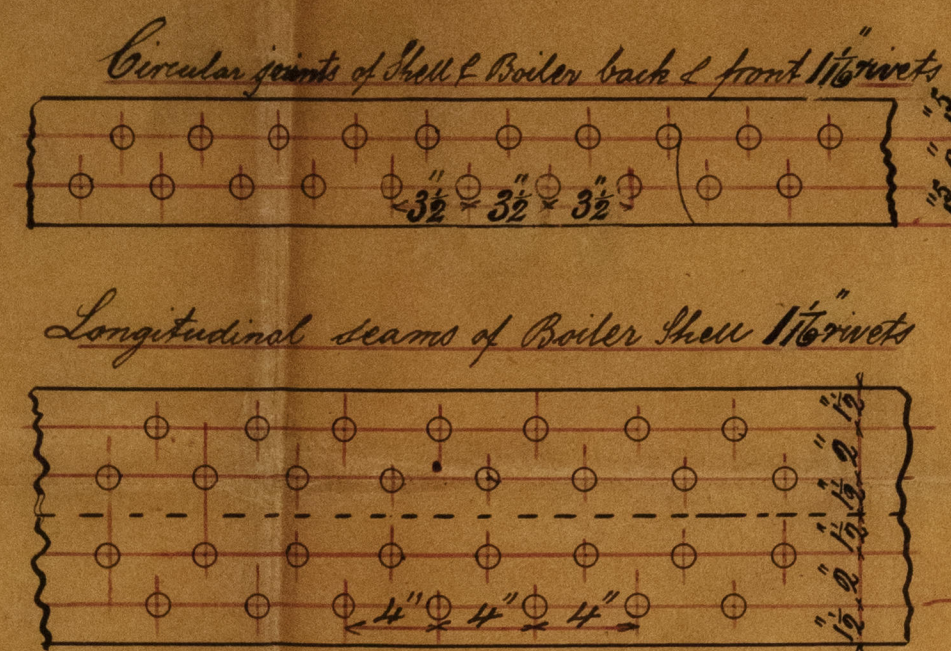 Circular joints of Shell & Boiler back & front 1 1/16" rivets
3 1/2" 3 1/2" 3 1/2"
Longitudinal seams of Boiler Shell 1 1/16" rivets
1 1/2" 2" 1 1/2" 1 1/2" 2" 1 1/2"
4" 4" 4"